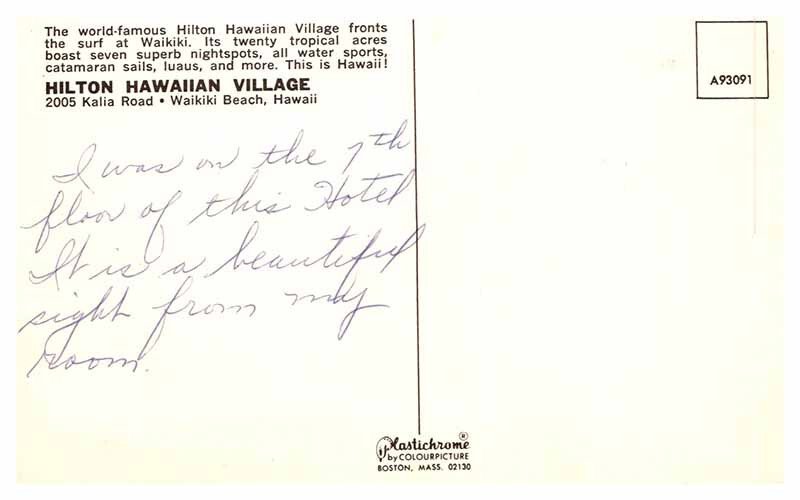 The world-famous Hilton Hawaiian Village fronts
the surf at Waikiki. Its twenty tropical acres
boast seven superb nightspots, all water sports,
catamaran sails, luaus, and more. This is Hawaii!
HILTON HAWAIIAN VILLAGE
2005 Kalia Road • Waikiki Beach, Hawaii
A93091
I was on the 7th
floor of this Hotel
It is a beautiful
sight from my
room.
Plastichrome ®
by COLOURPICTURE
BOSTON, MASS. 02130